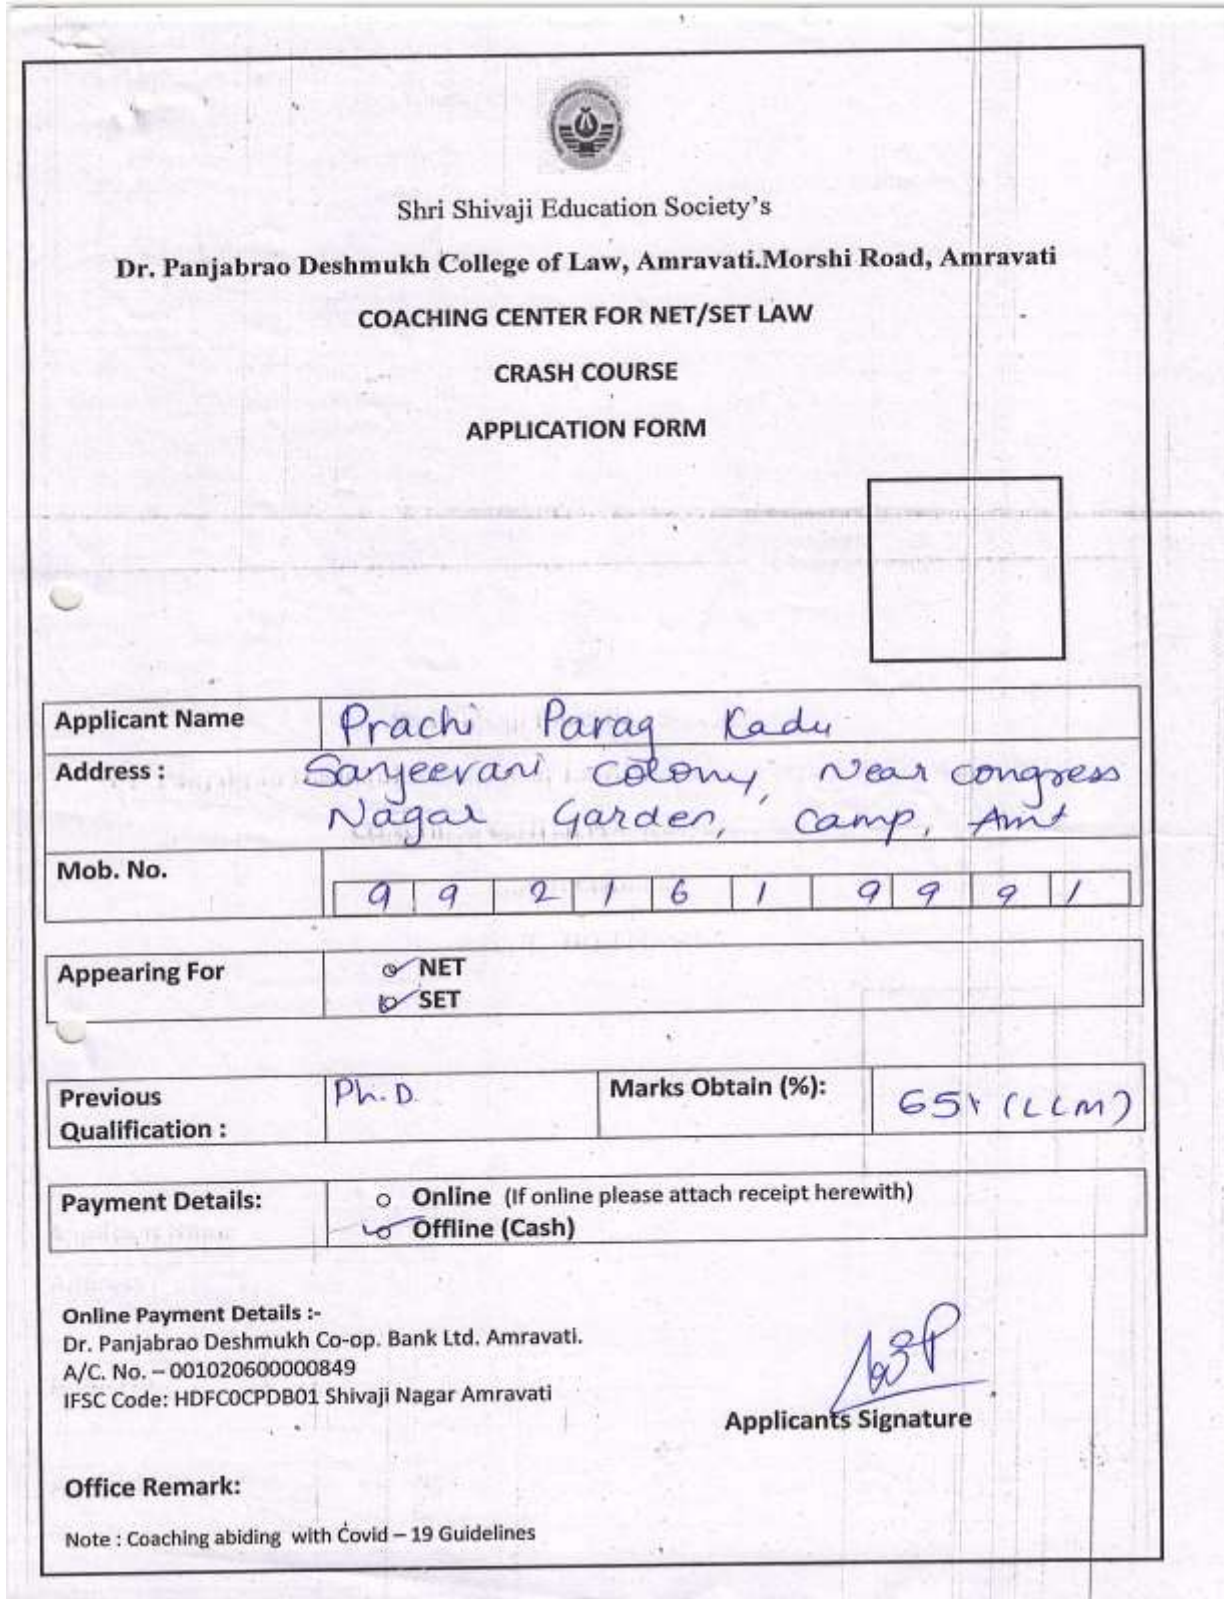 Shri Shivaji Education Society's
Dr. Panjabrao Deshmukh College of Law, Amravati.Morshi Road, Amravati
COACHING CENTER FOR NET/SET LAW
CRASH COURSE
APPLICATION FORM
Applicant Name Prachi Parag Kadu
Address : Sanjeevani colony, Near congress
Nagar Garden, Camp, Amt
Mob. No. 9 9 2 1 6 1 9 9 9 1
Appearing For NET
SET
Previous Qualification : Ph.D. Marks Obtain (%): 65% (LLM)
Payment Details: Online (If online please attach receipt herewith)
Offline (Cash)
Online Payment Details :-
Dr. Panjabrao Deshmukh Co-op. Bank Ltd. Amravati.
A/C. No. – 001020600000849
IFSC Code: HDFC0CPDB01 Shivaji Nagar Amravati
Applicants Signature
Office Remark:
Note : Coaching abiding with Covid – 19 Guidelines